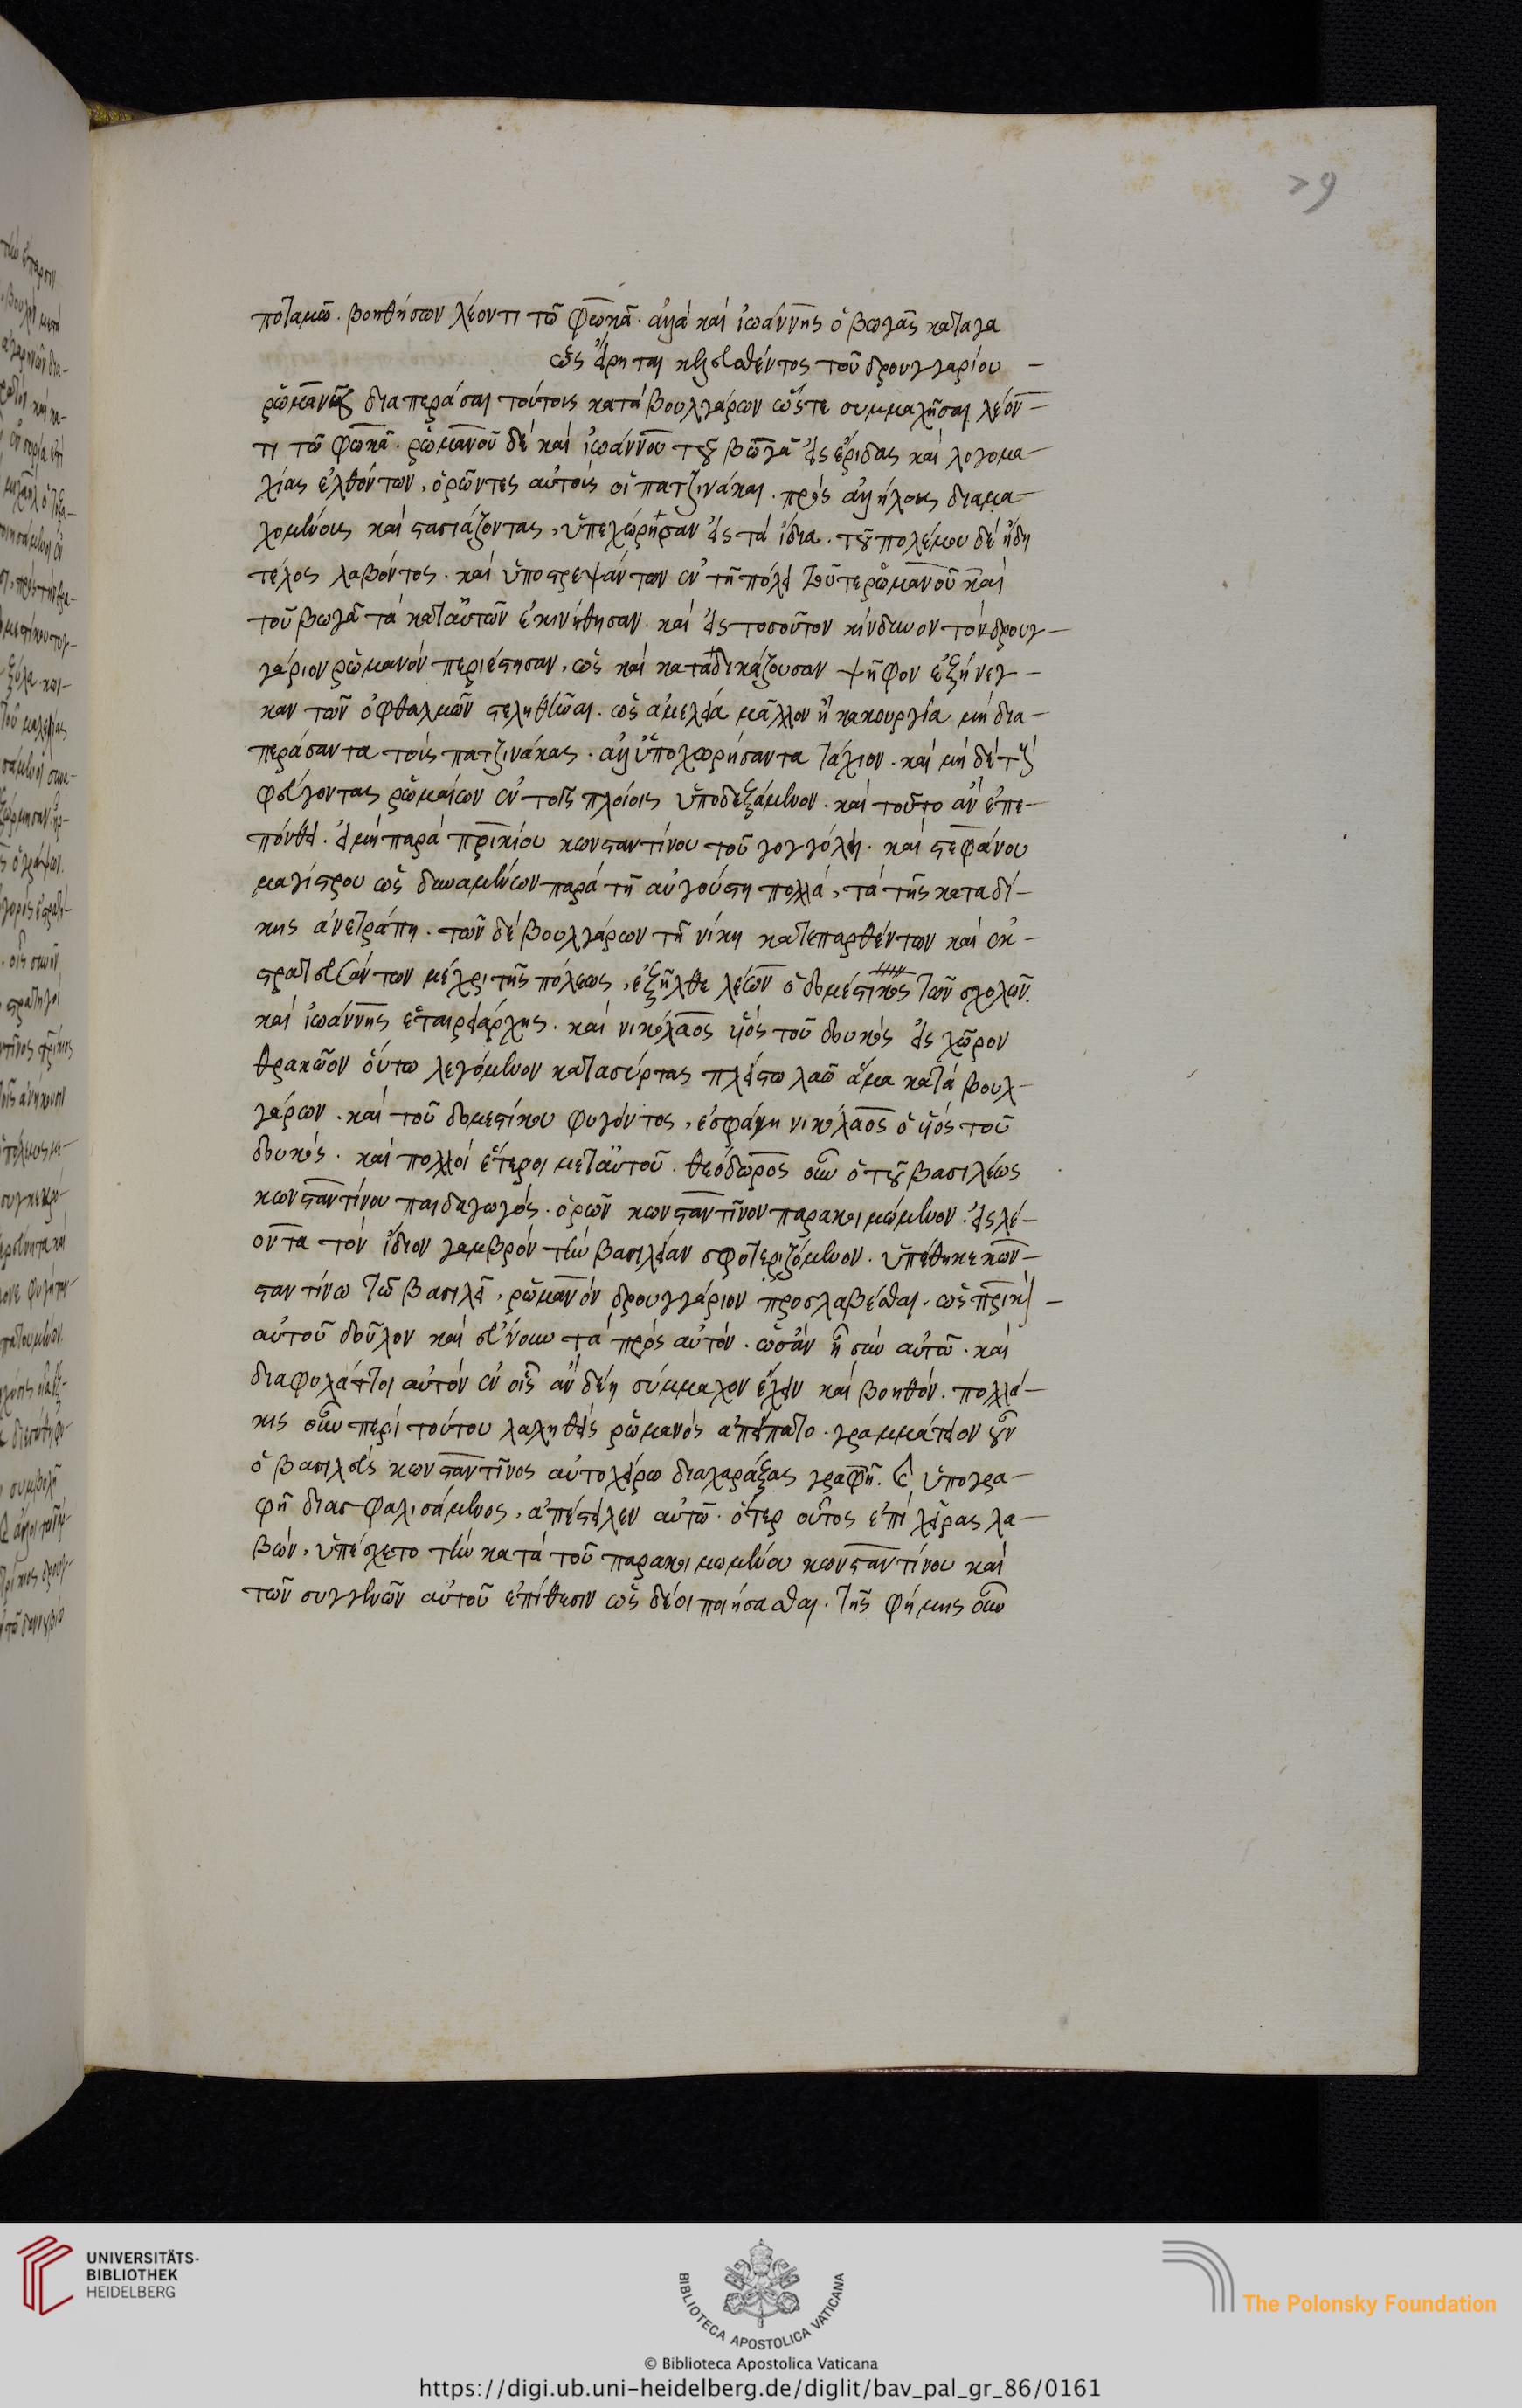 79
ποταμῶ. βοηθήσων λέοντι τῶ φωκᾶ. ἀλλὰ καὶ ἰωάννης ὁ βωγᾶς καταγα
ὡς εἴρηται κελευσθέντος τοῦ δρουγγαρίου –
ῥωμανοῦ διαπερᾶσαι τούτους κατὰ βουλγάρων ὥστε συμμαχῆσαι λέον–
τι τῶ φωκᾶ. ῥωμανοῦ δὲ καὶ ἰωάννου τοῦ βωγᾶ εἰς ἔριδας καὶ λογομα–
χίας ἐλθόντων, ὁρῶντες αὐτοὺς οἱ πατζινάκαι. πρὸς ἀλλήλους διαμα–
χομένους καὶ στασιάζοντας, ὑπεχώρησαν εἰς τὰ ἴδια. τοῦ πολέμου δὲ ἤδη
τέλος λαβόντος. καὶ ὑποστρεψάντων ἐν τῆ πόλει τοῦ τε ῥωμανοῦ καὶ
τοῦ βωγᾶ τὰ κατ' αὐτῶν ἐκινήθησαν. καὶ εἰς τοσοῦτον κίνδυνον τὸν δρουγ–
γάριον ῥωμανὸν περιέστησαν, ὡς καὶ καταδικάζουσαν ψῆφον ἐξήνεγ–
καν τῶν ὀφθαλμῶν στεληθῆναι. ὡς ἀμελεία μᾶλλον ἢ κακουργία μὴ δια–
περάσαντα τοὺς πατζινάκας. ἀλλ' ὑποχωρήσαντα τάχιον. καὶ μὴ δὲ τοὺς
φεύγοντας ῥωμαίων ἐν τοῖς πλοίοις ὑποδεξάμενον. καὶ τοῦτο ἂν ἐπε–
πόνθει. εἰ μὴ παρὰ πρικίου κωνσταντίνου τοῦ γογγύλη. καὶ στεφάνου
μαγίστρου ὡς δυναμένων παρὰ τῆ αὐγούστη πολλὰ, τὰ τῆς καταδί–
κης ἀνετράπη. τῶν δὲ βουλγάρων τῆ νίκη κατεπαρθέντων καὶ ἐκ–
στρατευσάντων μέχρι τῆς πόλεως, ἐξῆλθε λέων ὁ δομέστικος τῶν σχολῶν.
καὶ ἰωάννης ἑταιρειάρχης. καὶ νικόλαος υἱὸς τοῦ δουκὸς εἰς χῶρον
θρακῶον οὕτω λεγόμενον κατασύρτας πλείστω λαῶ ἅμα κατὰ βουλ–
γάρων. καὶ τοῦ δομεστίκου φυγόντος, ἐσφάγη νικόλαος ὁ υἱὸς τοῦ
δουκὸς. καὶ πολλοὶ ἕτεροι μετ' αὐτοῦ. θεόδωρος οὖν ὁ τοῦ βασιλέως
κωνσταντίνου παιδαγωγὸς. ὁρῶν κωνσταντῖνον παρακοιμώμενον. εἰς λέ–
οντα τὸν ἴδιον γαμβρὸν τὴν βασιλείαν σφετεριζόμενον. ὑπέθηκε κων–
σταντίνω τῶ βασιλεῖ, ῥωμανὸν δρουγγάριον προσλαβέσθαι. ὡς πρικὸν –
αὐτοῦ δοῦλον καὶ εὔνουν τὰ πρὸς αὐτὸν. ὡς ἂν ἦ σὺν αὐτῶ. καὶ
διαφυλάττοι αὐτὸν ἐν οἷς ἂν δέη σύμμαχον ἔχειν καὶ βοηθὸν. πολλά–
κις οὖν περὶ τούτου λαληθεὶς ῥωμανὸς ἀπείπατο. γραμμάτειον οὖν
ὁ βασιλεὺς κωνσταντῖνος αὐτοχείρω διαχαράξας γραφῆ. καὶ ὑπογρα–
φῆ διασφαλισάμενος, ἀπέστειλεν αὐτῶ. ὅπερ οὗτος ἐπὶ χεῖρας λα–
βὼν, ὑπέσχετο τὴν κατὰ τοῦ παρακοιμωμένου κωνσταντίνου καὶ
τῶν συγγενῶν αὐτοῦ ἐπίθεσιν ὡς δέοι ποιήσασθαι. τῆς φήμης οὖν
UNIVERSITÄTS-
BIBLIOTHEK
HEIDELBERG
BIBLIOTECA APOSTOLICA VATICANA
The Polonsky Foundation
© Biblioteca Apostolica Vaticana
https://digi.ub.uni-heidelberg.de/diglit/bav_pal_gr_86/0161